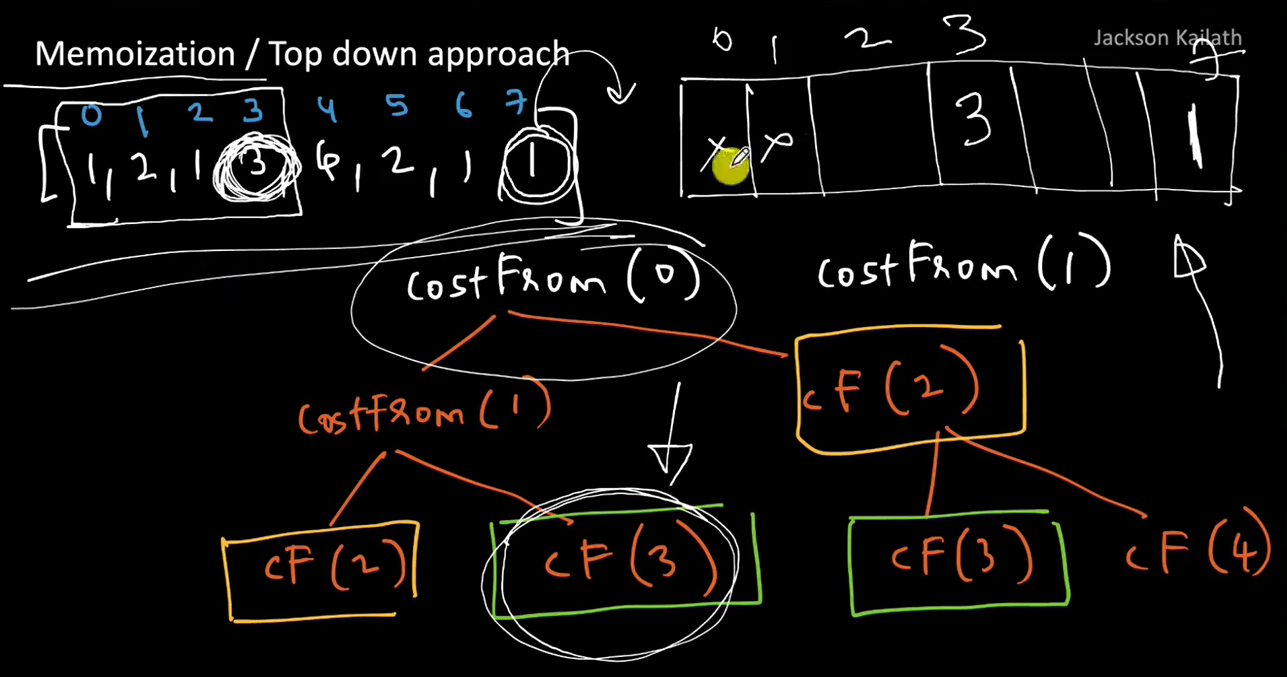 Memoization / Top down approach
Jackson Kailath
0 1 2 3 4 5 6 7
[1, 2, 1 3 4, 2, 1 1]
0 1 2 3 7
x x 3 1
costFrom (0)
costFrom (1)
costFrom (1)
cF (2)
cF (2)
cF (3)
cF (3)
cF (4)